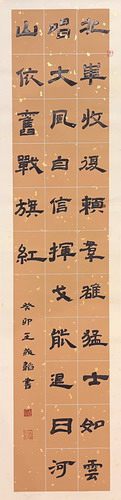 北華收復賴羣雄猛士如雲
唱大風自信揮戈能退日河
山依舊戰旗紅
癸卯王韜書